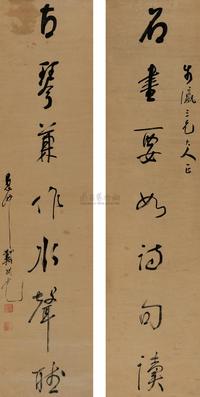 石畫要如詩句讀
步瀛三兄大人正
古琴兼作水聲聽